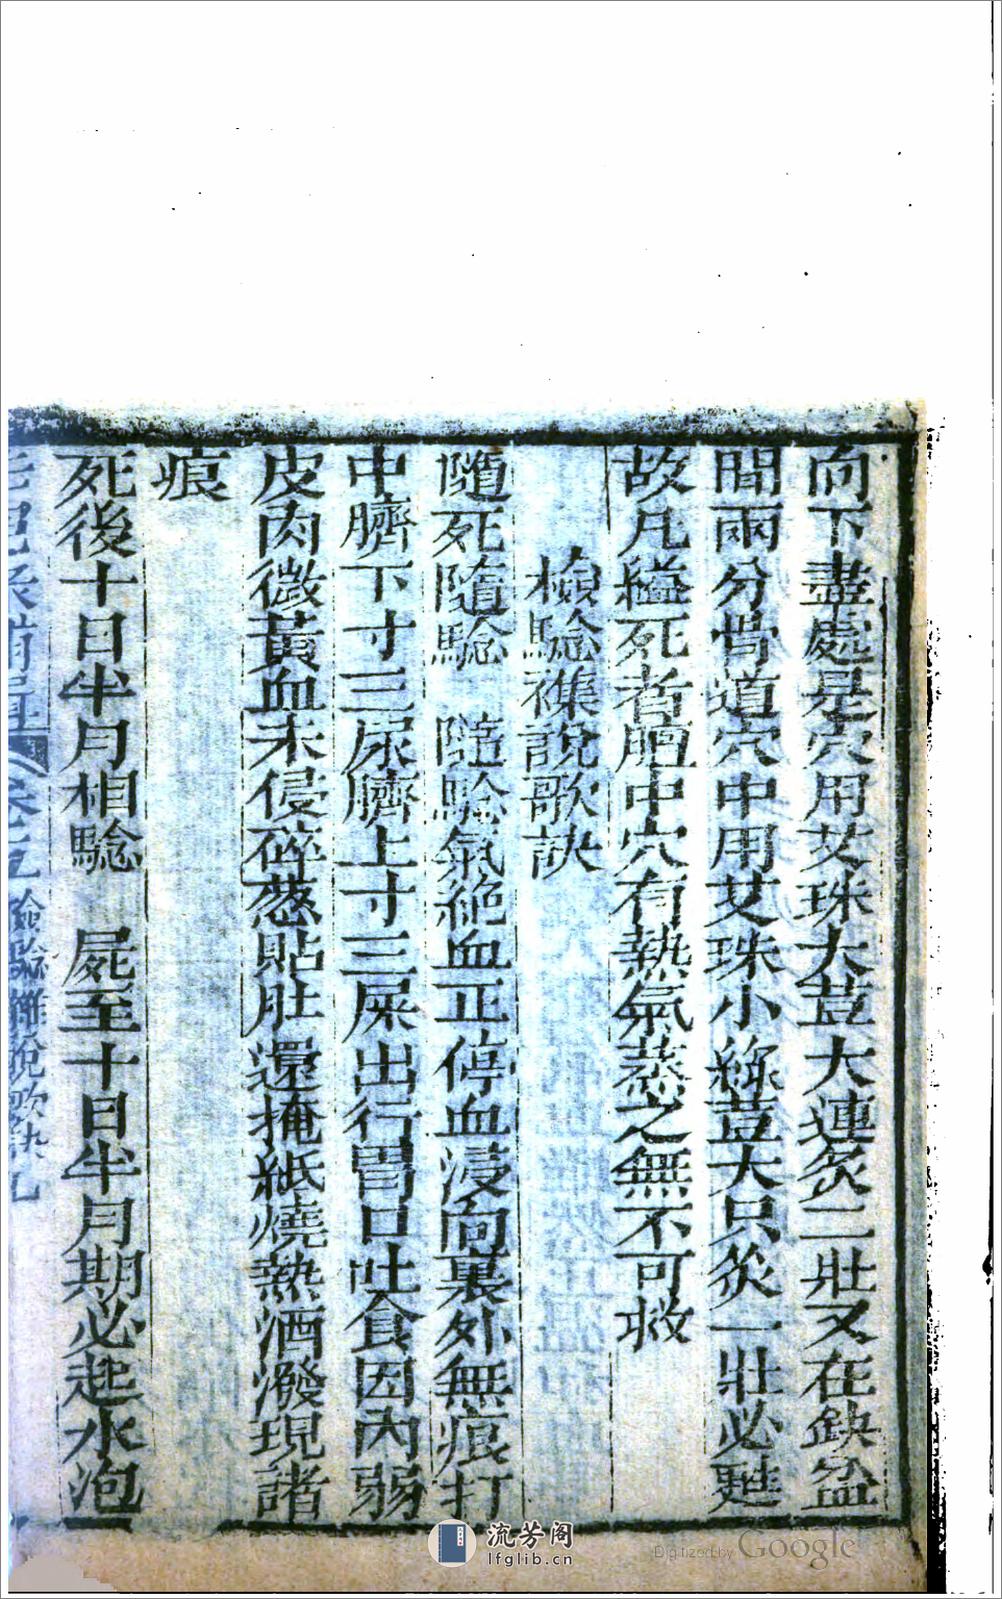 向下盡處是穴用艾珠大荳大連炙二壯又在缺盆
間兩分骨道穴中用艾珠小綠荳大只炙一壯必甦
故凡縊死者胞中穴有熱氣蒸之無不可救
檢驗襍說歌訣
隨死隨驗　隨驗氣絕血正停血浸向裏外無痕打
中臍下寸三尿臍上寸三屎出行胃口吐食因內弱
皮肉微黃血未侵碎葱貼肚還掩紙燒熱酒潑現諸
痕
死後十日半月相驗　屍至十日半月期必起水泡
檢驗雜說歌訣九
流芳阁
lfglib.cn
Digitized by Google